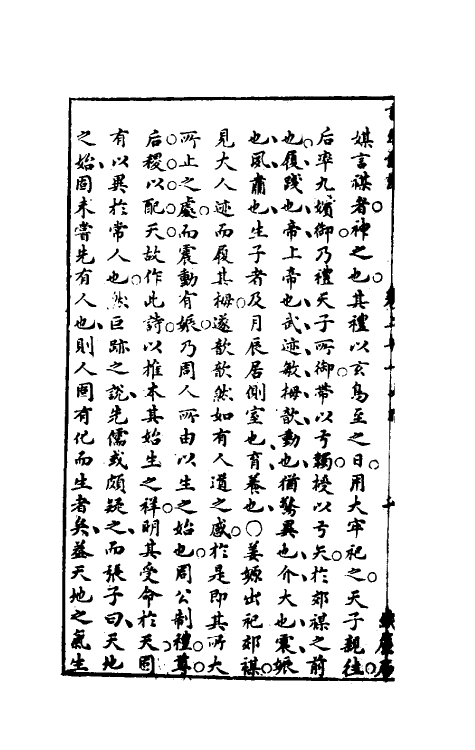 媒言禖者。神之也。其禮以玄鳥至之日。用大牢祀之。天子親往。
后率九嬪御。乃禮天子所御。帶以弓韣。授以弓矢。於郊禖之前
也。履、踐也。帝、上帝也。武、迹。敏、拇。歆、動也。猶驚異也。介、大也。震、娠
也。夙、肅也。生子者。及月辰居側室也。育、養也。〇姜嫄出祀郊禖。
見大人迹而履其拇。遂歆歆然如有人道之感。於是即其所大
所止之處。而震動有娠。乃周人所由以生之始也。周公制禮。尊
后稷以配天。故作此詩。以推本其始生之祥。明其受命於天。固
有以異於常人也。然巨跡之說、先儒或頗疑之、而張子曰、天地
之始、固未嘗先有人也、則人固有化而生者矣、蓋天地之氣生